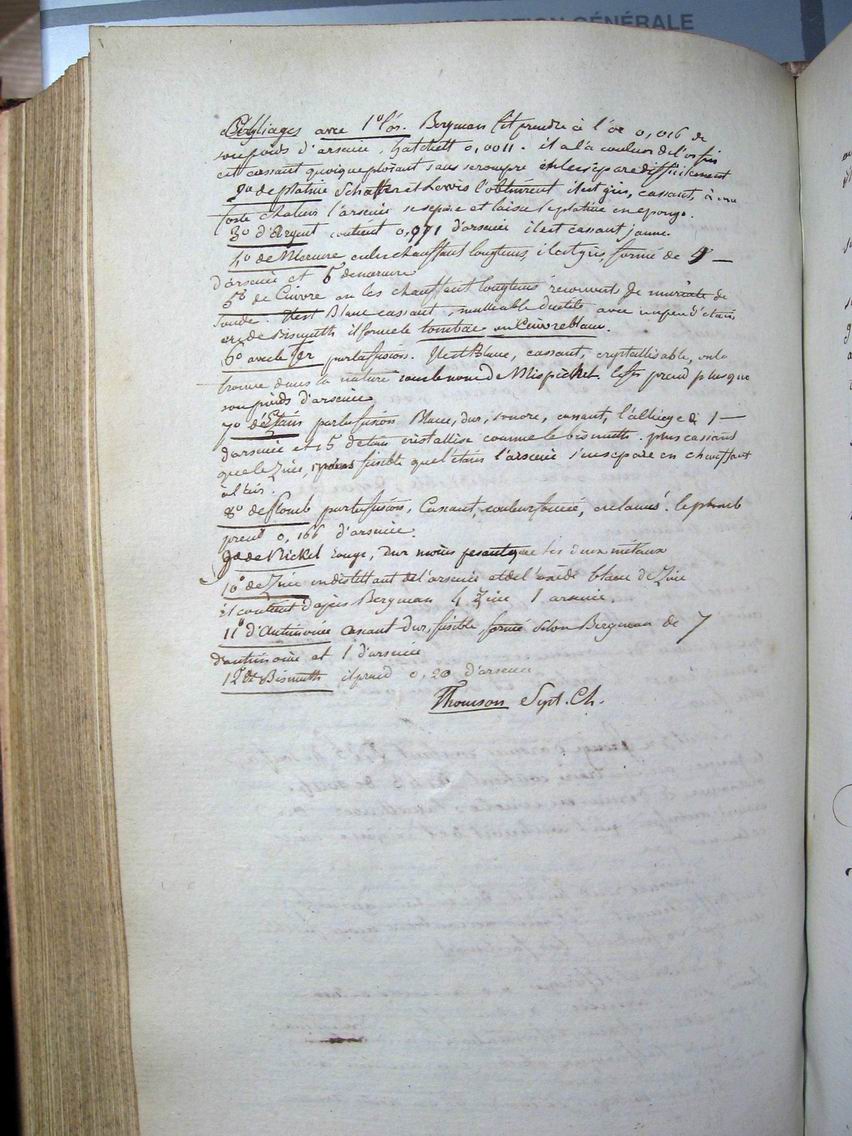 INSPECTION GÉNÉRALE
Alliages avec 1º l'or. Bergman fit prendre à l'or 0,016 de
son poids d'arsenic, hatchett 0,0011. il a la couleur de l'or fin
est cassant quoique ployant sans se rompre et il s'en separe difficilement
2º de platine Schaffer et Lewis l'obtinrent il est gris, cassant, à une
forte chaleur l'arsenic se separe et laisse le platine en eponge.
3º d'Argent contient 0,071 d'arsenic il est cassant jaune
4º de Mercure en les chauffant longtems, il est gris formé de
d'arsenic et 5 de mercure
5º de Cuivre en les chauffant longtems recouvert de muriate de
soude. Blanc cassant, malleable ductile avec un peu d'étain
et de Bismuth il forme le tombac ou Cuivre blanc.
6º avec le fer par la fusion. Il est Blanc, cassant, crystallisable, on le
trouve dans la nature sous le nom de Mispickel. le fer prend plus que
son poids d'arsenic
7º d'Etain par la fusion Blanc, dur, sonore, cassant, l'alliage de 1
d'arsenic et 15 d'etain cristallise comme le bismuth. plus cassant
que le Zinc, moins fusible que l'étain l'arsenic s'en separe en chauffant
à l'air.
8º de Plomb par la fusion, Cassant, couleur foncée, en lames. le plomb
prend 0,166 d'arsenic.
9º de Nickel rouge, dur moins pesant que les deux métaux
10º de Zinc en distillant de l'arsenic et de l'oxide blanc de Zinc
il contient d'apres Bergman 4 Zinc 1 arsenic.
11º d'Antimoine cassant dur, fusible formé selon Bergman de 7
d'antimoine et 1 d'arsenic
12º de Bismuth il prend 0,20 d'arsenic
Thomson Syst. Ch.